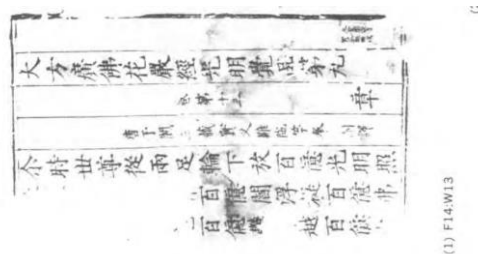 大方廣佛花嚴經光明覺品第九
卷第十三 章
唐于闐三藏實叉難陀等奉 制譯
尒時世尊從兩足輪下放百億光明照
百億閻浮提百億弗
百億 越百億
(1) F14:W13